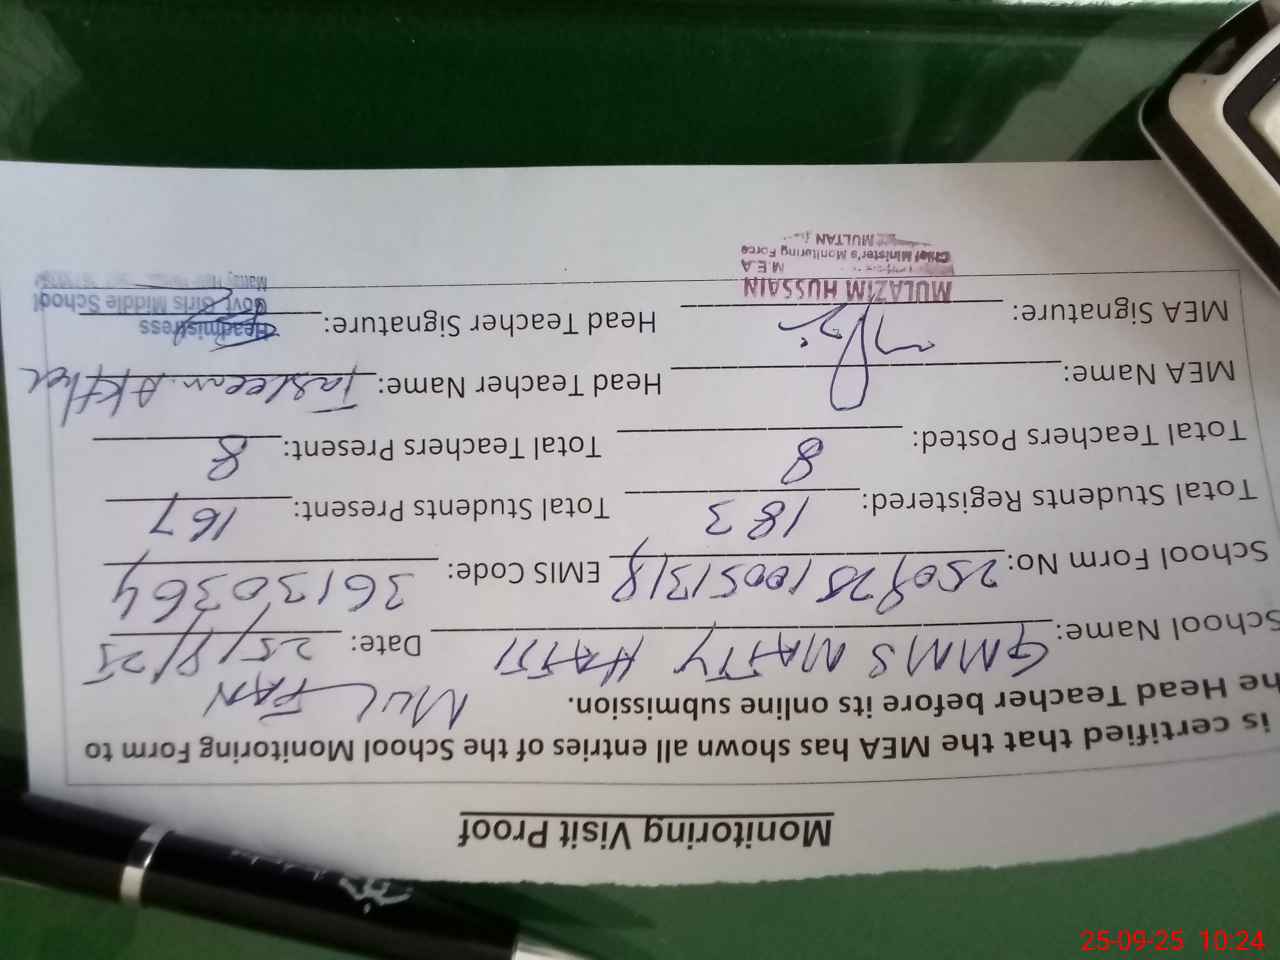 Monitoring Visit Proof
is certified that the MEA has shown all entries of the School Monitoring Form to
he Head Teacher before its online submission. MULTAN
School Name: GMMS MATTY HATTI Date: 25/9/25
School Form No: EMIS Code: 36130364
Total Students Registered: 183 Total Students Present: 167
Total Teachers Posted: 8 Total Teachers Present: 8
MEA Name: Head Teacher Name: Tasleem Akhter
MEA Signature: Head Teacher Signature:
MULAZIM HUSSAIN
M.E.A
Chief Minister's Monitoring Force
MULTAN
Headmistress
Govt. Girls Middle School
25-09-25 10:24